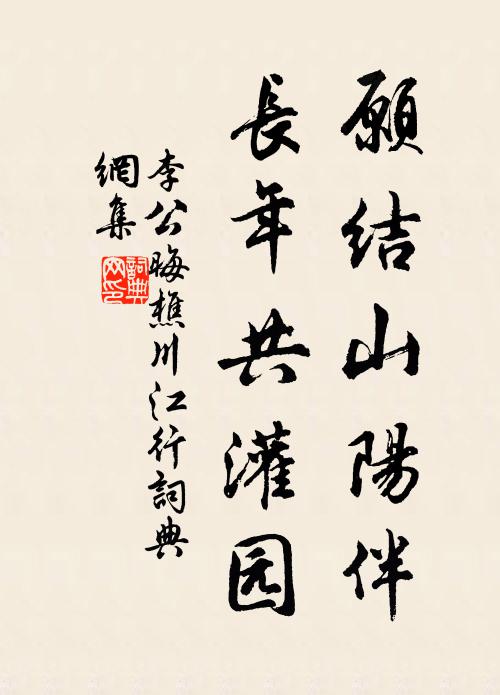 願结山陽伴
長年共灌园
李公晦樵川江行詞典
網集
詞典網印